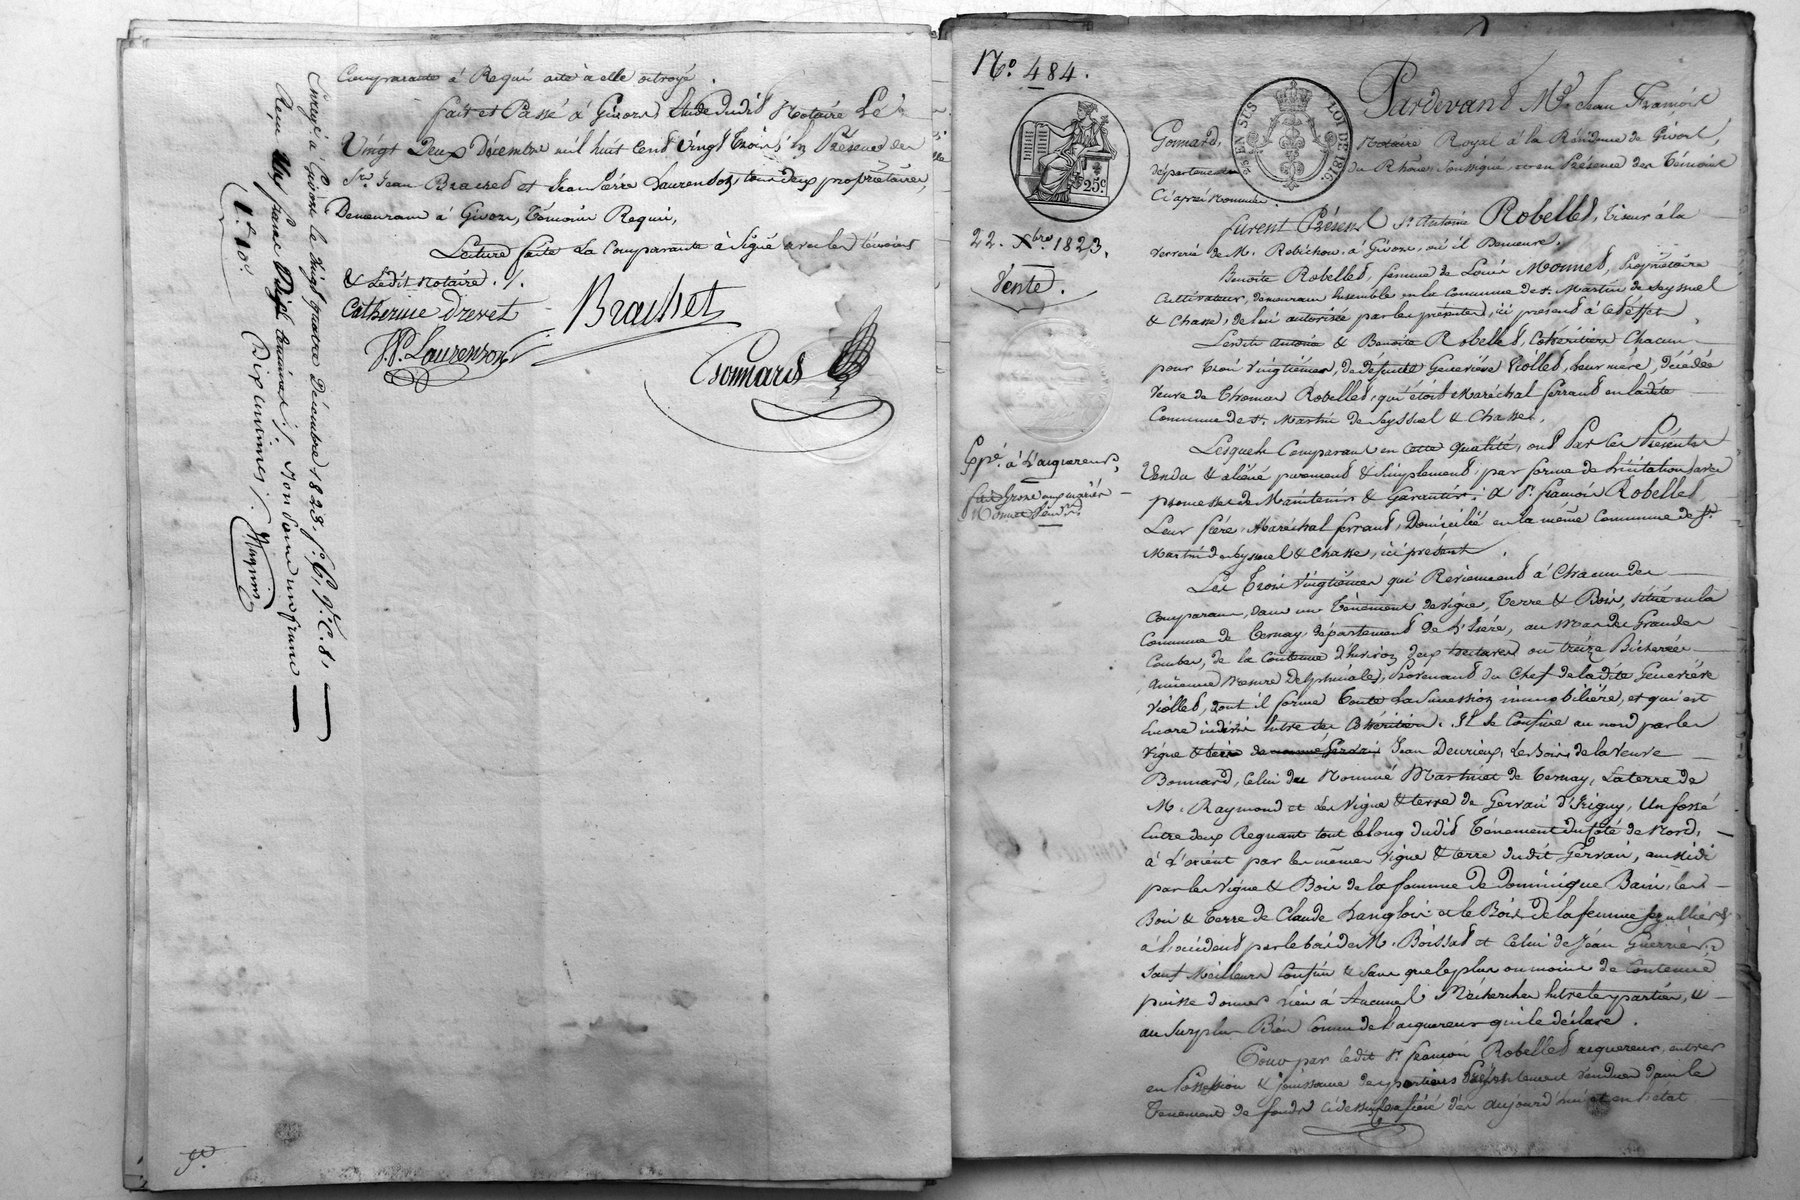 Comparante à Requis acte à elle octroyé.
fait et Passé à Givors Etude dudit Notaire Le
Vingt Deux Décembre mil huit Cent Vingt Trois, En Présence des
Srs. Jean Brachet et Jean Pierre Laurenson, tous deux propriétaires,
Demeurant à Givors, Témoins Requis,
Lecture faite La Comparante à Signé avec les témoins
& Ledit Notaire. /.
Catherine Drevet
Brachet
JP. Laurenson
Gonnard
Enregé à Givors le Vingt quatre Décembre 1823, fo. 6, Vo. C. 8,
Reçu Un franc Dix centimes /. Mon Salaire un franc
Dix centimes /.
1f. 10c.
No. 484.
25c.
25c EN SUS
LOI DE 1816.
22. Xbre 1823.
Vente.
Expé. à L'acquéreur,
fait Grosse aux mariés
Monnet
Pardevant Me. Jean François
Gonnard, Notaire Royal à la Résidence de Givors,
département du Rhône, Soussigné, et en Présence des Témoins
Ci après Nommés.
furent Présens Sr. Antoine Robellet, Tiseur à la
Verrerie de M. Robichon, à Givors, où il Demeure.
Benoite Robellet, femme de Louis Monnet, Propriétaire
Cultivateur, demeurant Ensemble en la Commune de St. Martin de Seyssuel
& Chasse, de lui autorisée par les présentes, ici présent à Cet Effet,
Lesdits Antoine & Benoite Robellet, Cohéritiers Chacun
pour Trois Vingtièmes, de défunte Geneviève Viollet, Leur mère, Décédée
Veuve de Thomas Robellet, qui étoit Maréchal ferrant en ladite
Commune de St. Martin de Seyssuel & Chasse.
Lesquels Comparans en Cette Qualité, ont Par Ces Présentes
Vendu & aliéné purement & Simplement, par forme de Licitation, avec
promesse de Maintenir & Garantir, à Sr. François Robellet
Leur frère, Maréchal ferrant, Domicilié en la même Commune de St.
Martin de Seyssuel & Chasse, ici présent.
Les Trois Vingtièmes qui Reviennent à Chacun des
Comparans, dans un Ténement de Vigne, Terre & Bois, situé en la
Commune de Ternay, département de L'Isère, au Mas des Grandes
Combes, de la Contenue d'Environ deux hectares ou treize Bicherées
Ancienne Mesure Delphinale, Provenant du Chef de ladite Geneviève
Viollet, dont il forme Toute La Succession immobilière, et qui est
Encore indivis Entre Ses Cohéritiers. Il Se Confine au nord par les
Vigne & terre de Jean Deurieux, Le Bois de la Veuve
Bonnard, Celui du Nommé Martinet de Ternay, La terre de
M. Raymond et Les Vigne & terre de Gervais d'Irigny, Un fossé
Entre deux Regnant tout le long dudit Ténement du Coté de Nord,
à L'orient par les mêmes Vigne & terre dudit Gervais, au Midi
par les Vigne & Bois de la femme de Dominique Bain, les
Bois & Terre de Claude Langlois et le Bois de la femme
à l'occident par le bois de M. Boissat et Celui de Jean Guerrier,
Sauf Meilleurs Confins & Sans que le plus ou moins de Contenue
puisse donner Lieu à Aucunes Recherches Entre les parties, &
au Surplus Bien Connu de l'acquéreur qui le déclare.
Pour par ledit Sr. François Robellet acquéreur, entrer
en Possession & jouissance des portions Présentement Vendues dans le
Ténement de fonds Ci dessus Confiné dès aujourd'hui et en l'état